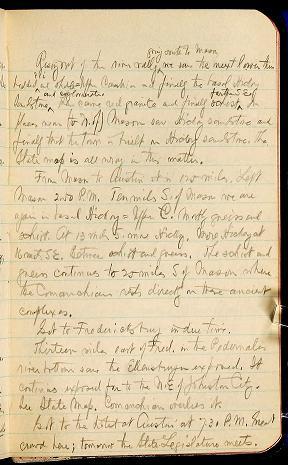 going south to Mason
Rising out of the river valley we saw the
of Upper Cambrian and finally the basal Hickory
and conglomerates farther S.E.
sandstone. Then came red granite and finally schist. In
places near to N. of Mason saw Hickory sandstone and
finally that the town is built on Hickory sandstone. The
State map is all wrong in this matter.
From Mason to Austin it is 120 miles. Left
Mason 2:00 P.M. Ten miles S. of Mason we are
again in basal Hickory = Upper C. Mostly gneiss and
schist. At 13 miles S. more Hickory. More Hickory at
16 miles S.E. between schist and gneiss. The schist and
gneiss continues to 20 miles S. of Mason where
the Comanchian rests directly on these ancient
complexes.
Got to Fredericksburg in due time.
Thirteen miles east of Fred. in the Pedernales
river bottom saw the Ellenburger exposed. It
continues exposed far to the N.E. of Johnson City.
See State Map. Comanchian overlies it.
Got to the Hotel at Austin at 7:30 P.M. Great
crowd here; tomorrow the State Legislature meets.